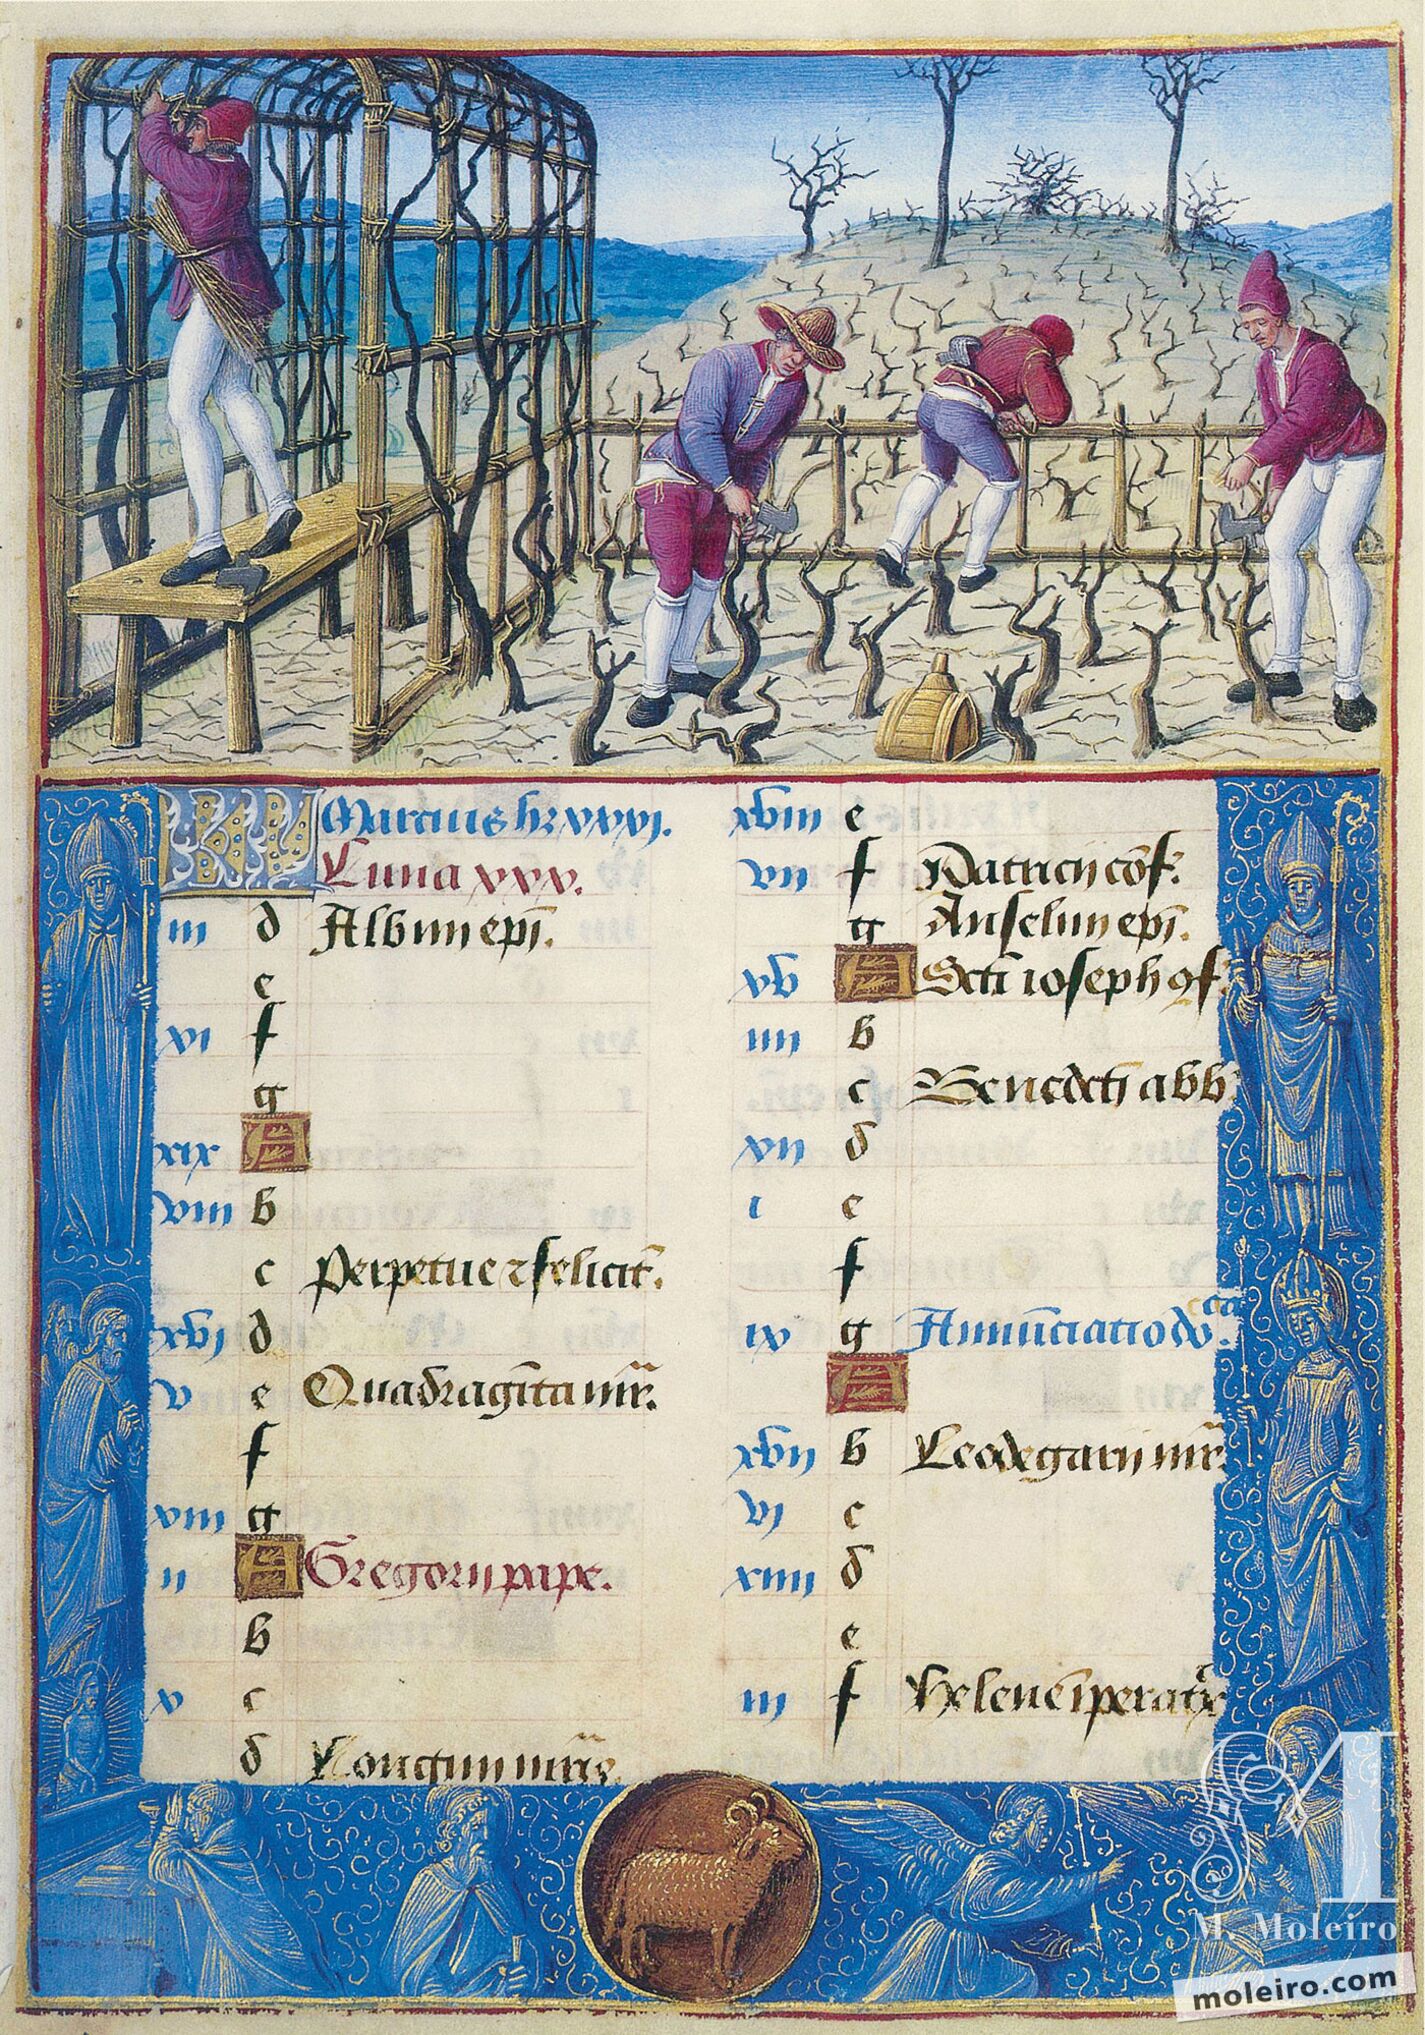 KL Marcius hȝ xxxi.
Luna xxx.
iii d Albini epī.
e
xi f
g
xix A
viii b
c Perpetue ⁊ felicit̄.
xvi d
v e Quadragīta mr̄.
f
xiii g
ii A Gregorij pape.
b
x c
d Longini mr̄is.
xviii e
vii f Patricij cōf.
g Anselmi epī.
xv A Scti ioseph ꝯf.
iiii b
c Benedcti abb
xii d
i e
f
ix g Annūciatio dn̄ica.
A
xvii b Leodegarij mr̄.
vi c
xiiii d
e
iii f Helene īperatr̄
M
M. Moleiro
moleiro.com